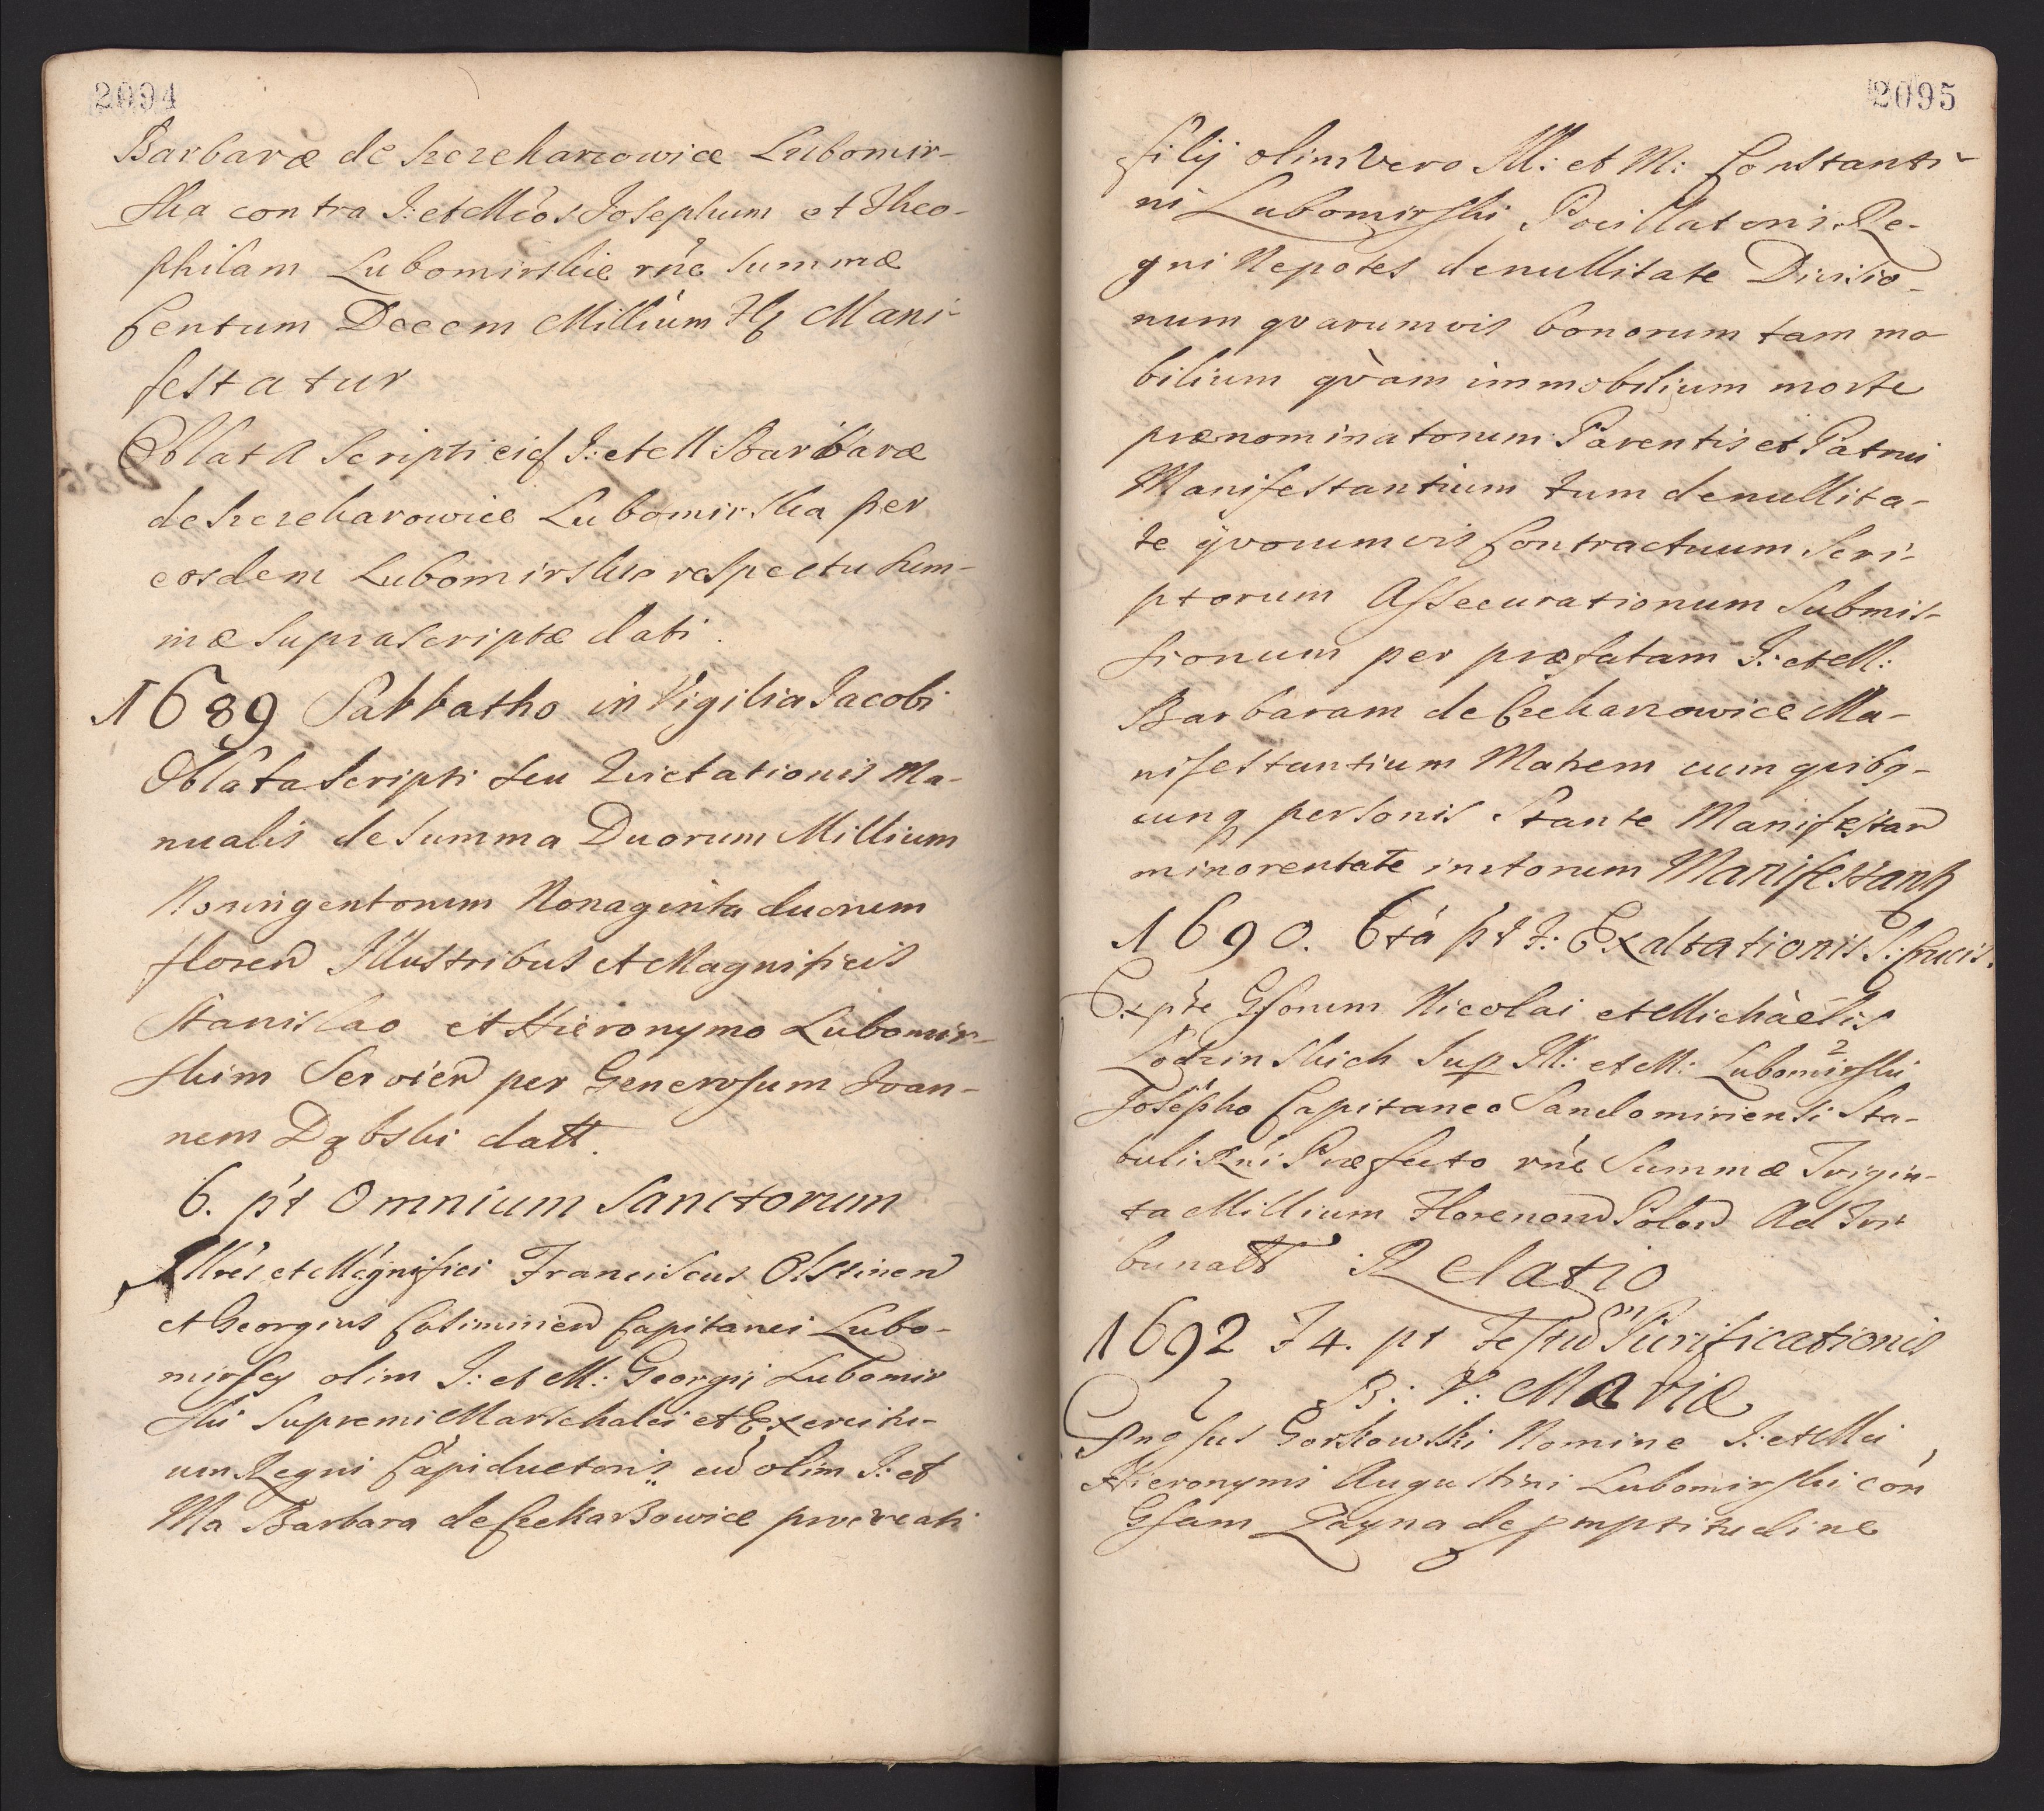 2094
Barbaræ de Szczekarzowice Lubomir-
ska contra I: et Mcos Josephum et Theo-
philam Lubomirskie rne summæ
Centum Decem Millium Mani-
festatur
Oblata Scripti eid I: et M Barbaræ
de Szczekarowice Lubomirska per
eosdem Lubomirskie respectu Sum-
mæ supra scriptæ dati.
1689 Sabbatho in Vigilia Jacobi
Oblata Scripti seu Quietationis Ma-
nualis de Summa Duorum Millium
Noningentorum Nonaginta duorum
floren Illustribus et Magnificis
Stanislao et Hieronymo Lubomir-
skim Servien per Generosum Joan-
nem Dąbski datt.
6. pt Omnium Sanctorum
Illres et Magnifici Franciscus Olsztinen
et Georgius Casimirien Capitanei Lubo-
mirscy olim I: et M: Georgij Lubomir
ski Supremi Marschalci et Exercitu-
um Regni Capiductoris cu olim I: et
Ma Barbara de Czekarzowice procreati
2095
filij olim vero Ill: et M: Constanti-
ni Lubomirski Pocillatoris Re-
gni Nepotes de nullitate Divisio-
num qvarumvis bonorum tam mo
bilium qvam immobilium morte
prænominatorum Parentis et Patrui
Manifestantium tum de nullita-
te qvorumvis Contractuum Scri-
ptorum Assecurationum Submis-
sionum per præfatam I: et M:
Barbaram de Czekarzowice Ma-
nifestantium Matrem cum quibq-
cunq personis Stante Manifestan
minorentate initorum Manifestant
1690. 6ta pt f: Exaltationis S: Crucis.
Ex pte Gsorum Nicolai et Michaelis
Lodzinskich Sup Ill: et M: Lubomirski
Josepho Capitaneo Sandomiriensi Sta-
buli Rni Præfecto rne Summæ Trigin-
ta Millium Florenoru Polon Ad Tri
bunalt Relatio
1692 f 4. pt Festu Purificationis
B: V: Mariæ
Gnosus Gorkowski Nomine I: et Mci
Hieronymi Augustini Lubomirski con
Gsam Zayna de pmptitudine